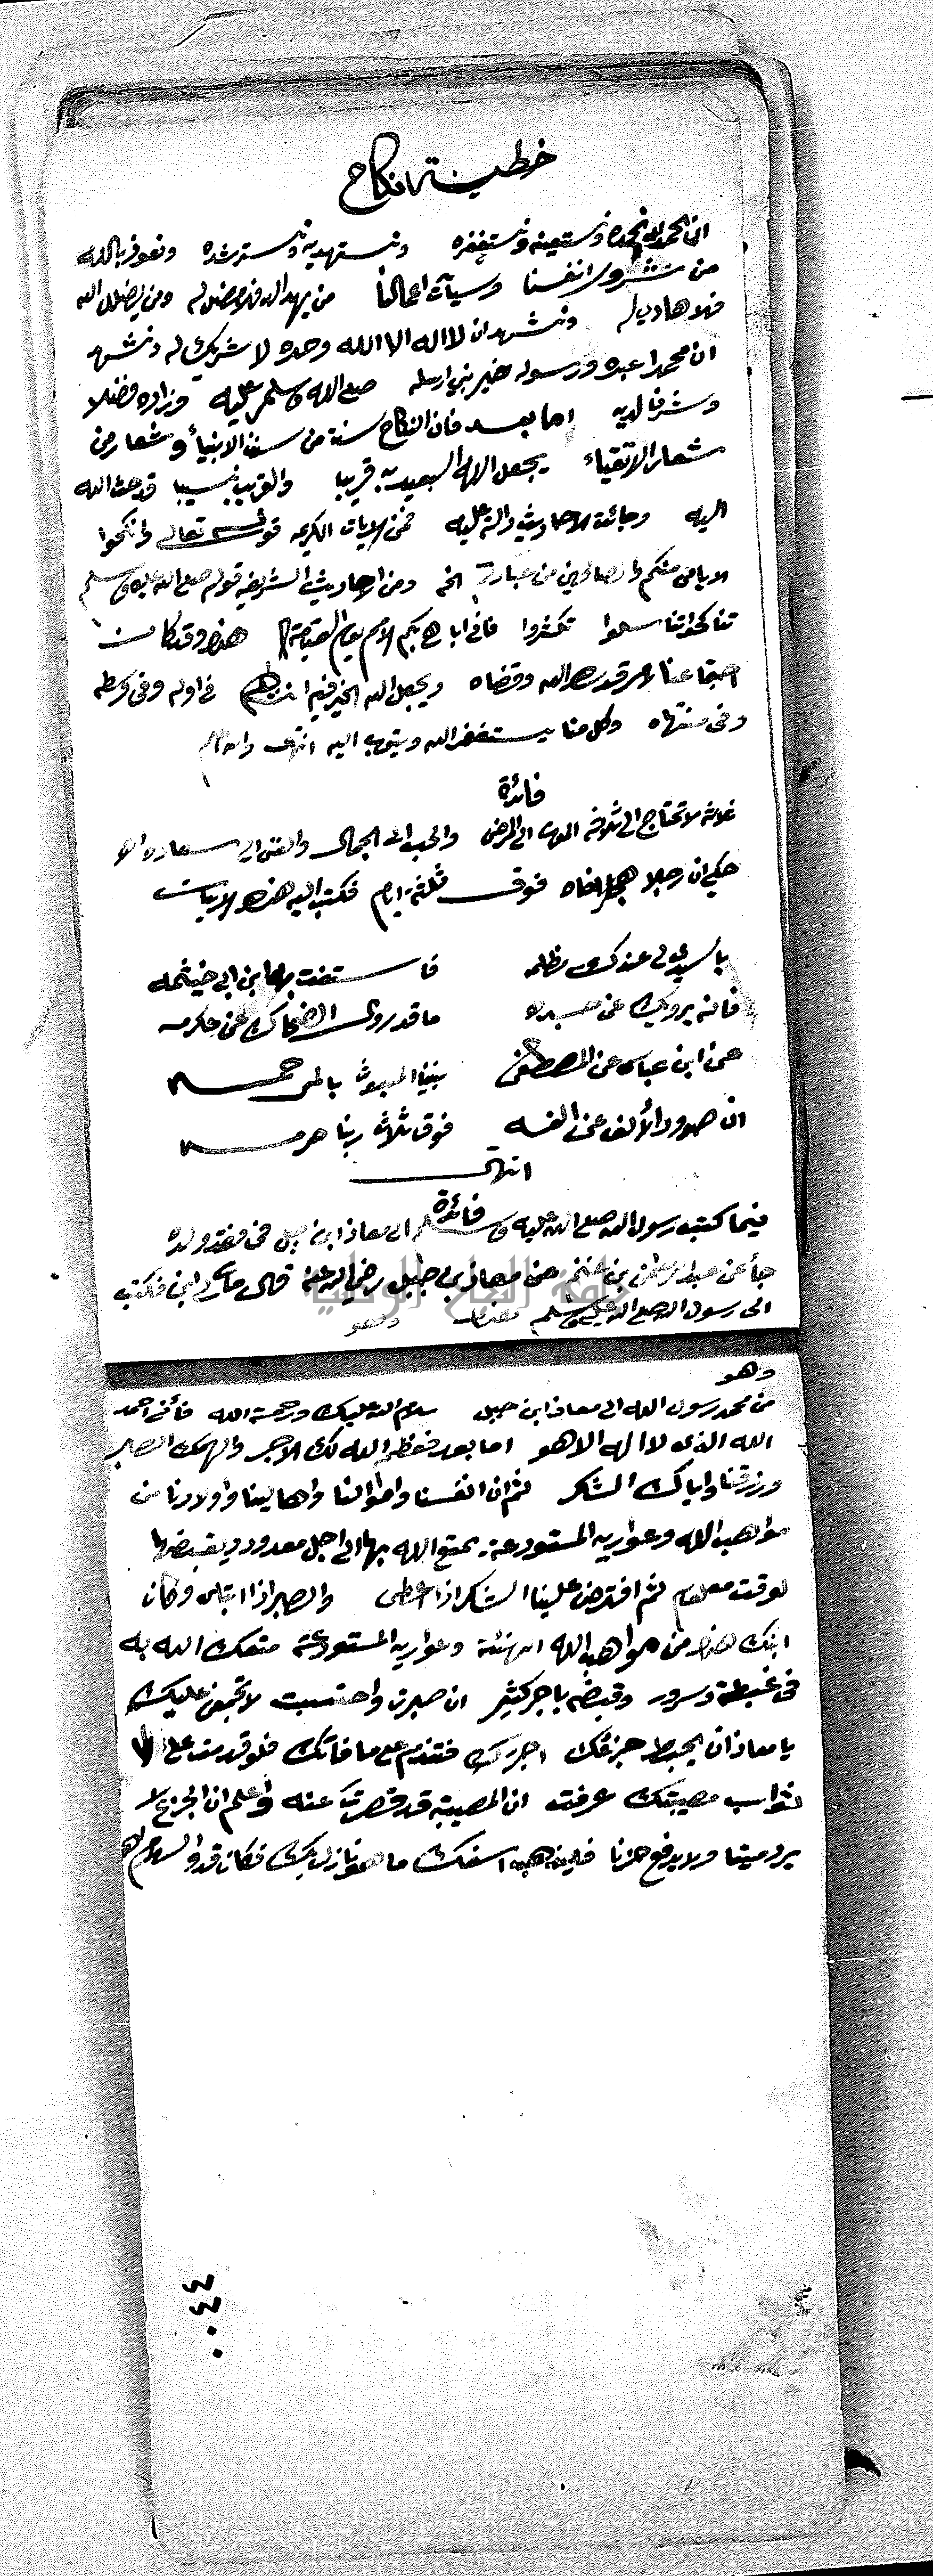 خطبة النكاح
ان الحمد لله نحمده ونستعينه ونستغفره ونستهديه ونسترشده ونعوذ بالله
من شرور انفسنا وسيآت اعمالنا من يهد الله فلا مضل له ومن يضلل الله
فلا هادي له ونشهد ان لا اله الا الله وحده لا شريك له ونشهد
ان محمدا عبده ورسوله خير نبي ارسله صلى الله عليه وسلم وزاده فضلا
وشرفا لديه اما بعد فان النكاح سنة من سنن الانبياء وشعار من
شعار الاتقياء يجعل الاله البعيد به قريبا والغريب نسيبا قد حث الله
اليه وجائت الاحاديث دالة عليه فمن الايات الكريمه قوله تعالى وانكحوا
الايامى منكم والصالحين من عبادكم الخ ومن الاحاديث الشريفه قوله صلى الله عليه وسلم
تناكحوا تناسلوا تكثروا فاني اباهي بكم الامم يوم القيامة هذا وقد كان
اجتماعنا لامر قدره الله وقضاه ويجعل الله الخير فيه في اوله وفي وسطه
وفي منتهاه وكل منا يستغفر الله ويتوب اليه انتهى
فائدة
ثلاثة لا تحتاج الى ثلاثة والحب الى الجمال والغنى الى
حكي ان رجلا هجر اخاه فوق ثلثة ايام فكتب اليه هذه الابيات
يا سيدي لي عندك مظلمه فاستفت بها ابن ابي خيثمه
فانه يرويك عن جده ما قد روى الضحاك عن عكرمه
عن ابن عباس عن المصطفى نبينا المبعوث بالمرحمه
ان صدود الألف عن الفه فوق ثلاث ربنا حرمه
انتهى
فائدة
فيما كتب رسول الله صلى الله عليه وسلم الى معاذ ابن جبل في فقد ولده
جأ عن عبد الرحمن بن غنم عن معاذ بن جبل رضي الله عنه قال مات لي ابن فكتب
الى رسول الله صلى الله عليه وسلم وهو
وهو
من محمد رسول الله الى معاذ ابن جبل سلام الله عليك ورحمة الله فأني احمد
الله الذي لا اله الا هو اما بعد فعظم الله لك الاجر والهمك الصبر
ورزقنا واياك الشكر ثم ان انفسنا واموالنا واهالينا واولادنا من
مواهب الله وعواريه المستودعة يمتع الله بها الى اجل معدود ويقبضها
لوقت معلوم ثم افترض علينا الشكر اذا اعطى والصبر اذا ابتلى وكان
ابنك هذا من مواهب الله الهنئة وعواريه المستودعة متعك الله به
في غبطة وسرور وقبضه باجر كثير ان صبرت واحتسبت لا تجمعن عليك
يا معاذ ان يحبط جزعك اجرك فتندم على ما فاتك فلو قدمت على
ثواب مصيبتك عرفت ان المصيبة قد قصرت عنه واعلم ان الجزع لا
يرد ميتا ولا يدفع حزنا فليذهب اسفك ما هو نازل بك فكان قد والسلام